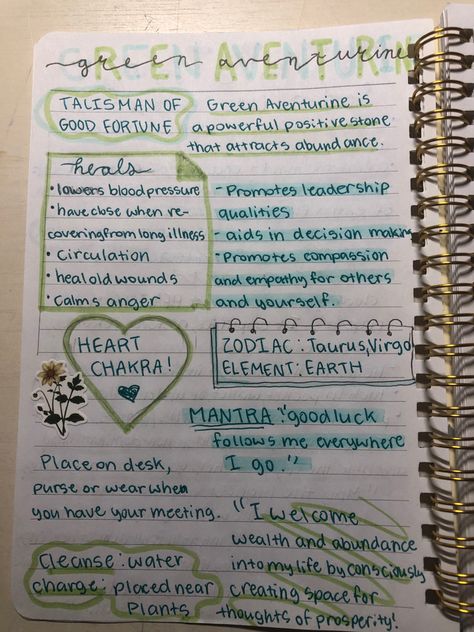 green aventurine
TALISMAN OF
GOOD FORTUNE
Green Aventurine is
a powerful positive stone
that attracts abundance.
heals
• lowers blood pressure
• have close when re-
covering from long illness
• circulation
• heal old wounds
• calms anger
- Promotes leadership
qualities
- aids in decision making
- Promotes compassion
and empathy for others
and yourself.
HEART
CHAKRA!
ZODIAC: Taurus, Virgo
ELEMENT: EARTH
MANTRA: "good luck
follows me everywhere
I go."
Place on desk,
purse or wear when
you have your meeting.
"I welcome
wealth and abundance
into my life by consciously
creating space for
thoughts of prosperity!
Cleanse: water
charge: placed near
Plants